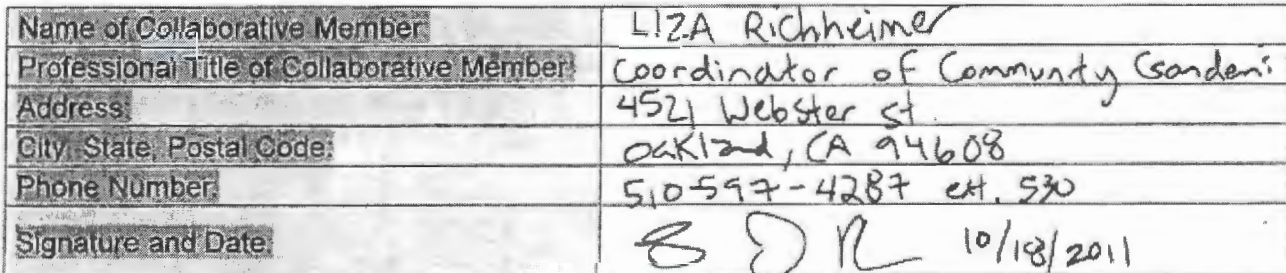 Name of Collaborative Member: LIZA Richheimer
Professional Title of Collaborative Member: Coordinator of Community
Address: 4521 Webster st.
City, State, Postal Code: Oakland, CA 94608
Phone Number: 510-597-4287 ext. 530
Signature and Date: 10/18/2011